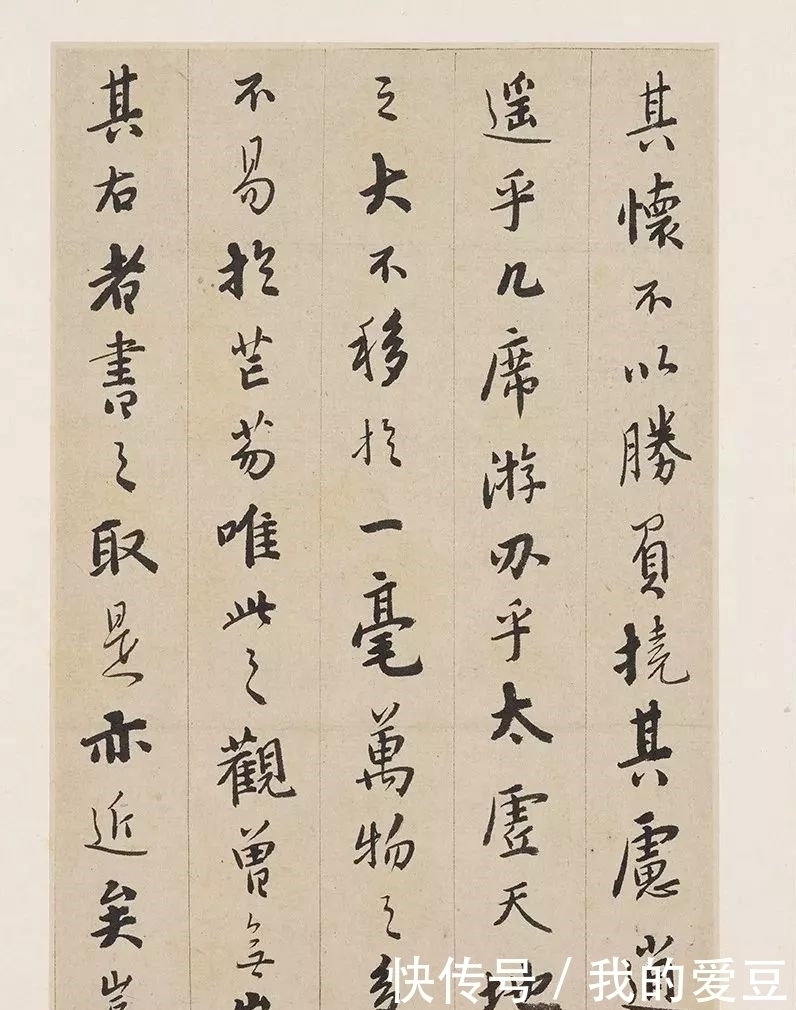 其懷不以勝負撓其慮逍
遥乎几席游刃乎太虛天地
之大不移於一毫萬物之多
不易於芒芴唯此之觀曾無出
其右者書之取是亦近矣豈
快传号 / 我的爱豆